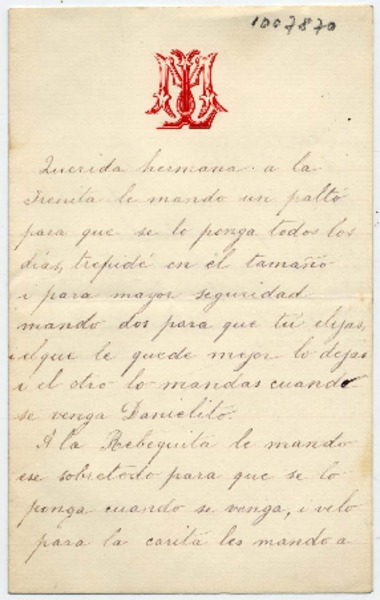 1007870
Querida hermana: a la
Irenita le mando un paltó
para que se lo ponga todos los
dias, trepidé en el tamaño
i para mayor seguridad
mando dos para que tú elijas,
i el que le quede mejor lo dejas
i el otro lo mandas cuando
se venga Danielito.
A la Rebequita le mando
ese sobretodo para que se lo
ponga cuando se venga, i velo
para la carita les mando a